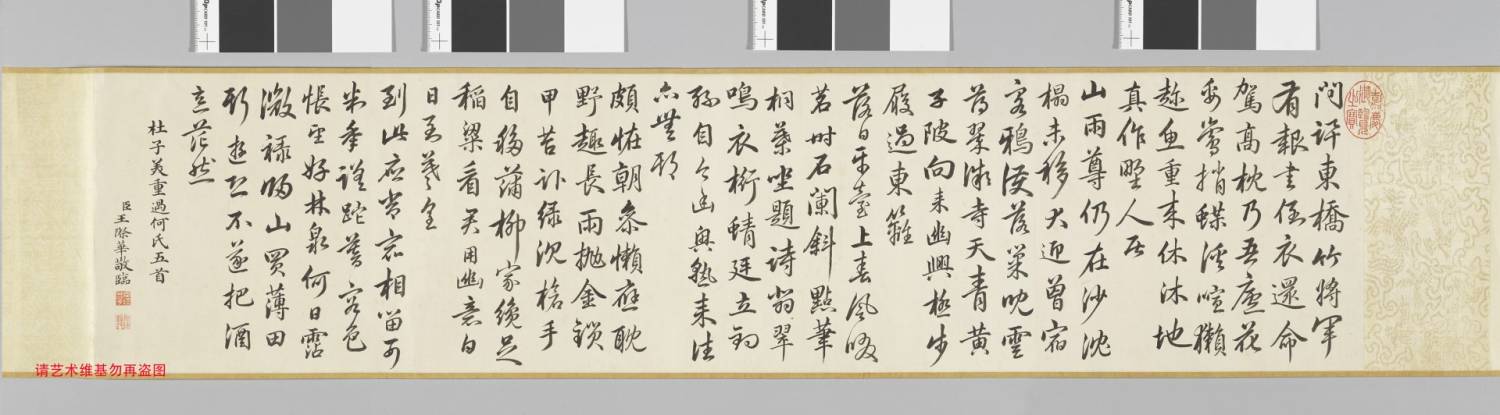 問訊東橋竹將軍
有報書倒衣還命
駕高枕乃吾廬花
妥鶯捎蝶溪喧獺
趂魚重來休沐地
真作野人居
山雨尊仍在沙沈
榻未移犬迎曾宿
客鴉護落巢兒雲
薄翠微寺天青黄
子陂向来幽興極步
屐過東籬
落日平臺上春風啜
茗時石闌斜點筆
桐葉坐題詩翡翠
鳴衣桁蜻蜓立釣
絲自今幽興熟来往
亦無期
頗怪朝參懶應耽
野趣長雨抛金鎖
甲苔卧綠沈槍手
自移蒲柳家纔足
稻粱看君用幽意白
日到羲皇
到此應常宿相留可
判年蹉跎暮容色
悵望好林泉何日霑
微祿歸山買薄田
斯遊恐不遂把酒
意茫然
杜子美重過何氏五首
臣王際華敬臨
嘉慶御覽之寶
请艺术维基勿再盗图